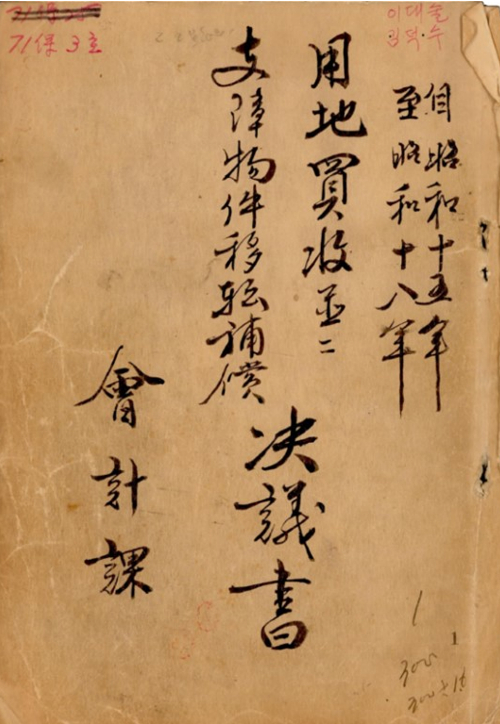 自昭和十五年
至昭和十八年
用地買收並ニ
支障物件移転補償
决議書
會計課
71保 3호
이대술
김덕수